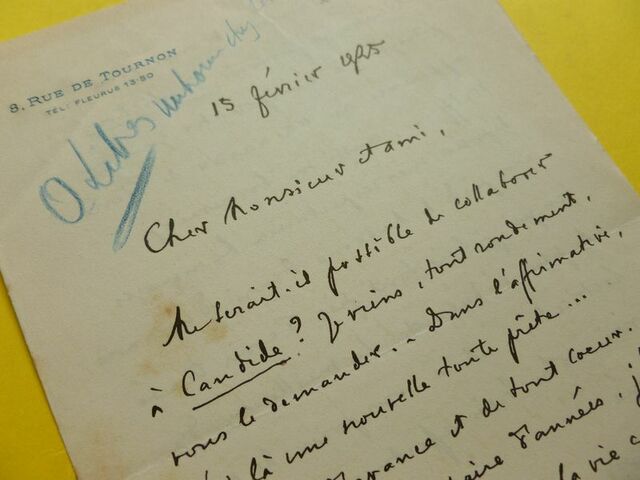 8, RUE DE TOURNON
TÉL: FLEURUS 13-80
15 février 1925
Cher Monsieur & ami,
Me serait-il possible de collaborer
à Candide? Je viens, tout rondement,
vous le demander. Dans l'affirmative,
là une nouvelle toute prête...
et de tout coeur.
d'années, j'
la vie